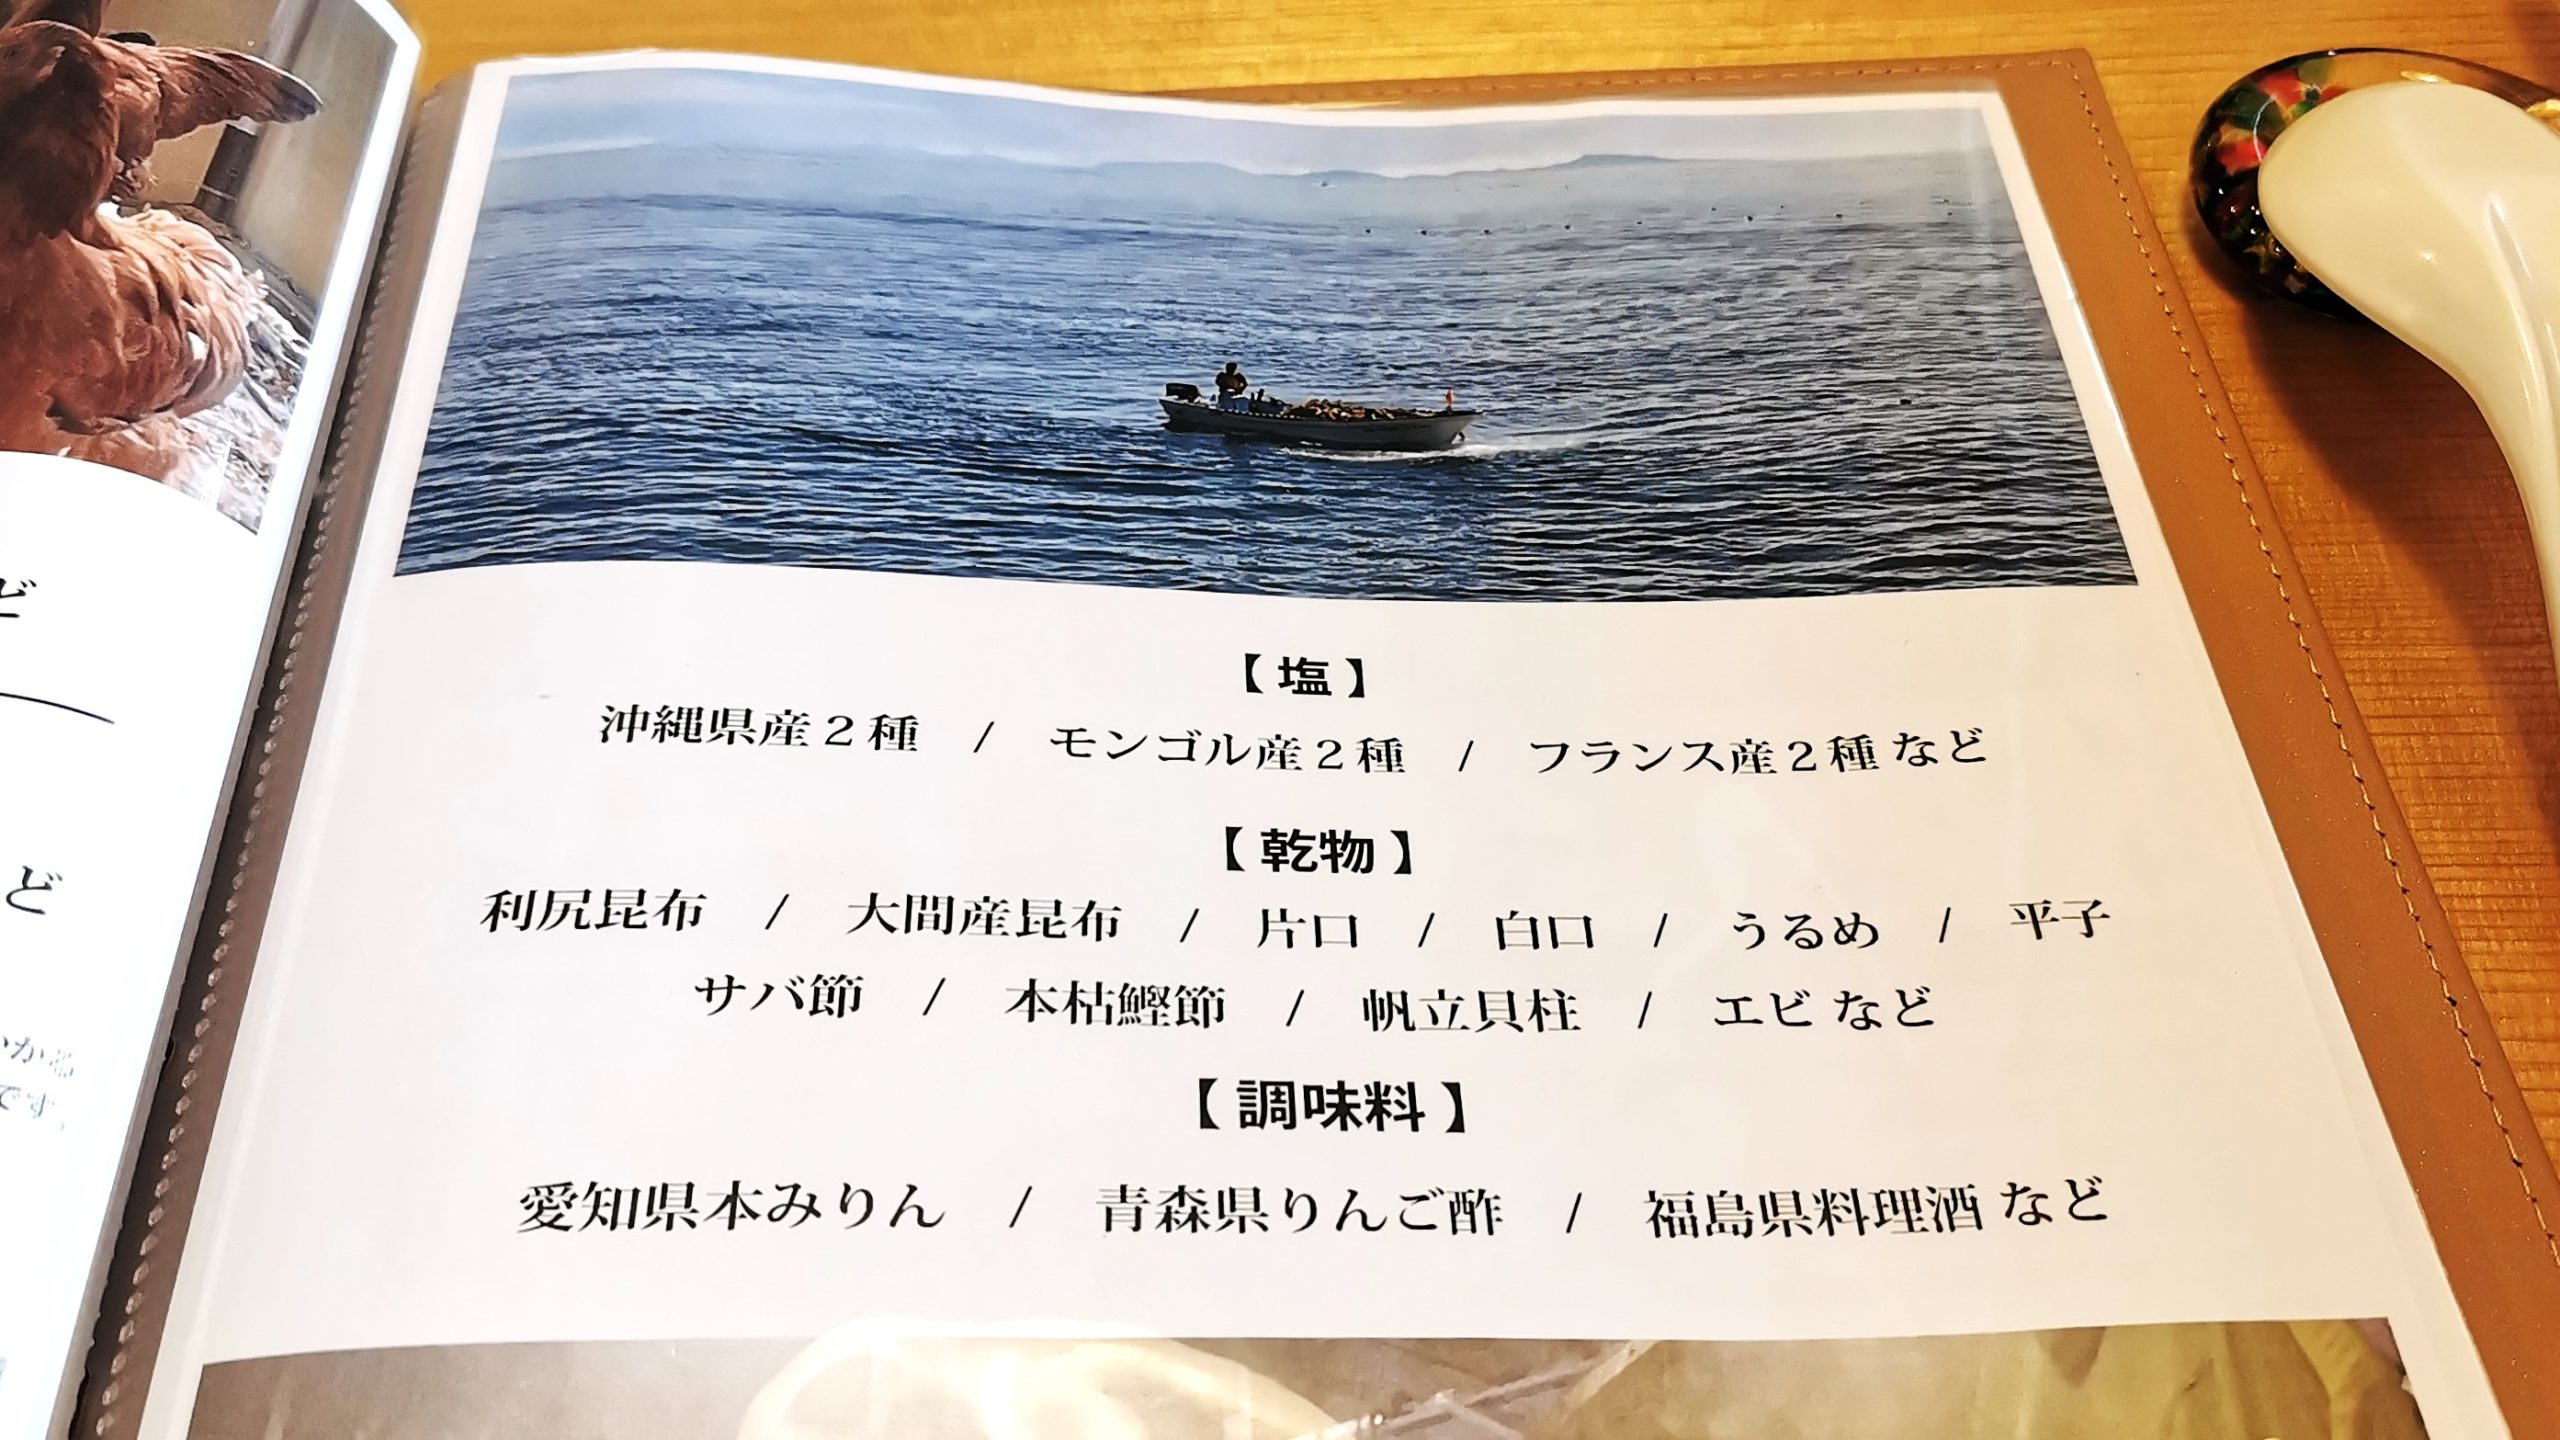 ど
ど
かる
です。
【 塩 】
沖縄県産２種 / モンゴル産２種 / フランス産２種 など
【 乾物 】
利尻昆布 / 大間産昆布 / 片口 / 白口 / うるめ / 平子
サバ節 / 本枯鰹節 / 帆立貝柱 / エビ など
【 調味料 】
愛知県本みりん / 青森県りんご酢 / 福島県料理酒 など